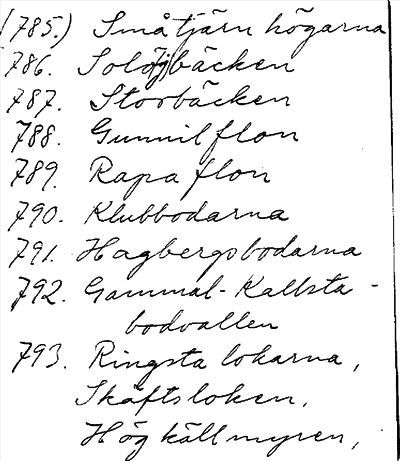 (785.) Småtjärn högarna
786. Solöjbäcken
787. Storbäcken
788. Gunnilflon
789. Rapaflon
790. Klubbodarna
791. Hagbergsbodarna
792. Gammal-Kallsta-
bodvallen
793. Ringsta lokarna,
Skäftsloken,
Hög källmyren,